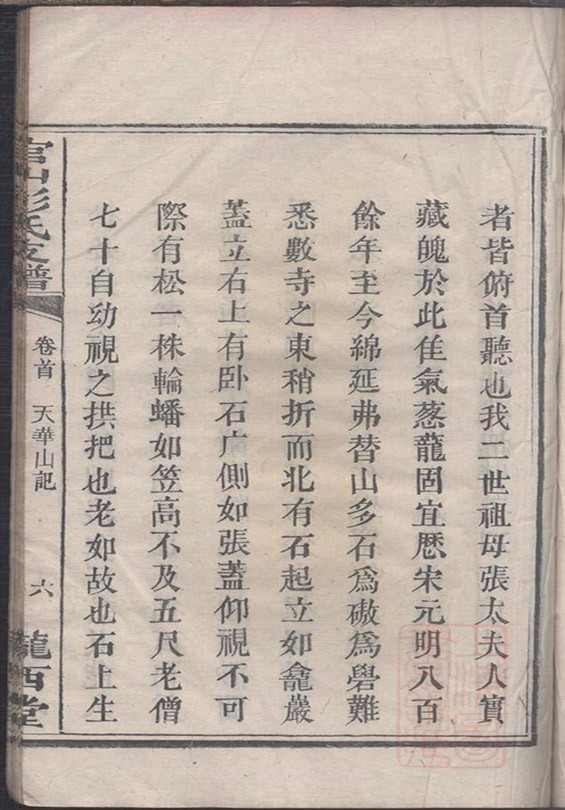 者皆俯首聽也我二世祖母張太夫人實
藏魄於此佳氣葱蘢固宜歷宋元明八百
餘年至今綿延弗替山多石為磝為礐難
悉數寺之東稍折而北有石起立如龕巖
蓋立右上有卧石广側如張蓋仰視不可
際有松一株輪蟠如笠高不及五尺老僧
七十自幼視之拱把也老如故也石上生
官山彭氏支譜
卷首 天華山記
六
隴西堂